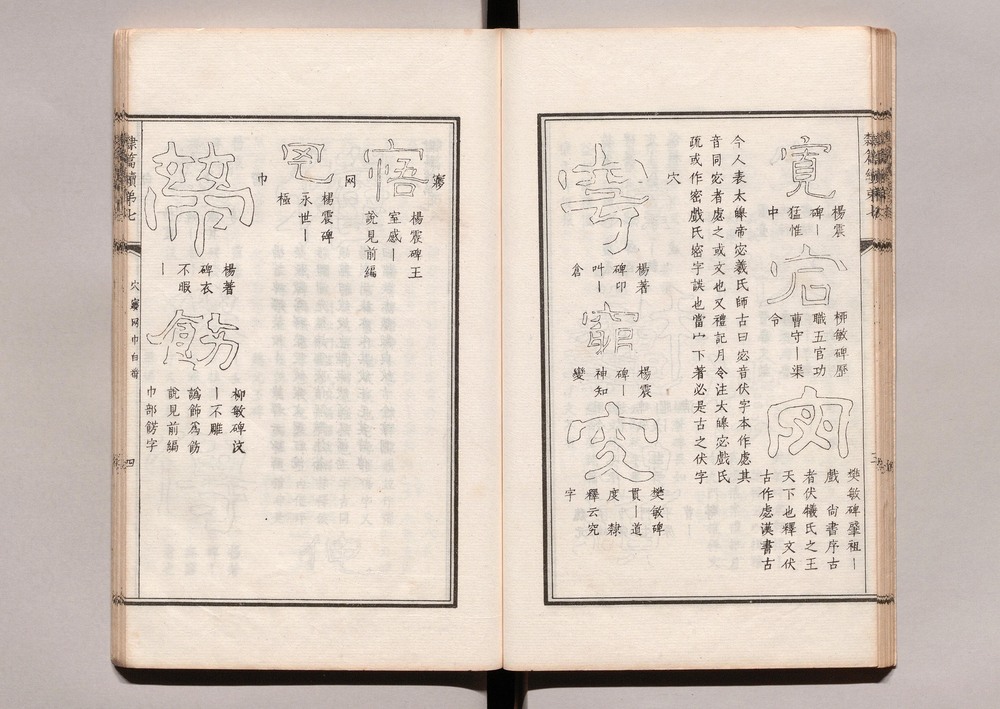 寬
楊震
碑丨
猛惟
中
宕
柳敏碑歷
職五官功
曹守丨渠
令
宓
樊敏碑肇祖丨
戲 尙書序古
者伏犧氏之王
天下也釋文伏
古作虙漢書古
今人表太皞帝宓羲氏師古曰宓音伏字本作虙其
音同宓者處之或文也又禮記月令注大皞宓戲氏
疏或作密戲氏密字誤也當宀下著必是古之伏字
穴
楊著
碑卬
叫丨
倉
楊震
碑丨
神知
變
究
樊敏碑
貫丨道
度 隸
釋云究
字
㝱
寤
楊震碑王
室感丨
說見前編
网
楊震碑
永世丨
極
巾
帶
楊著
碑衣
不暇
丨
飾
柳敏碑汶
丨不雕
譌飾爲飭
說見前編
巾部餝字
隸篇續第七
穴㝱网巾白㡀
四